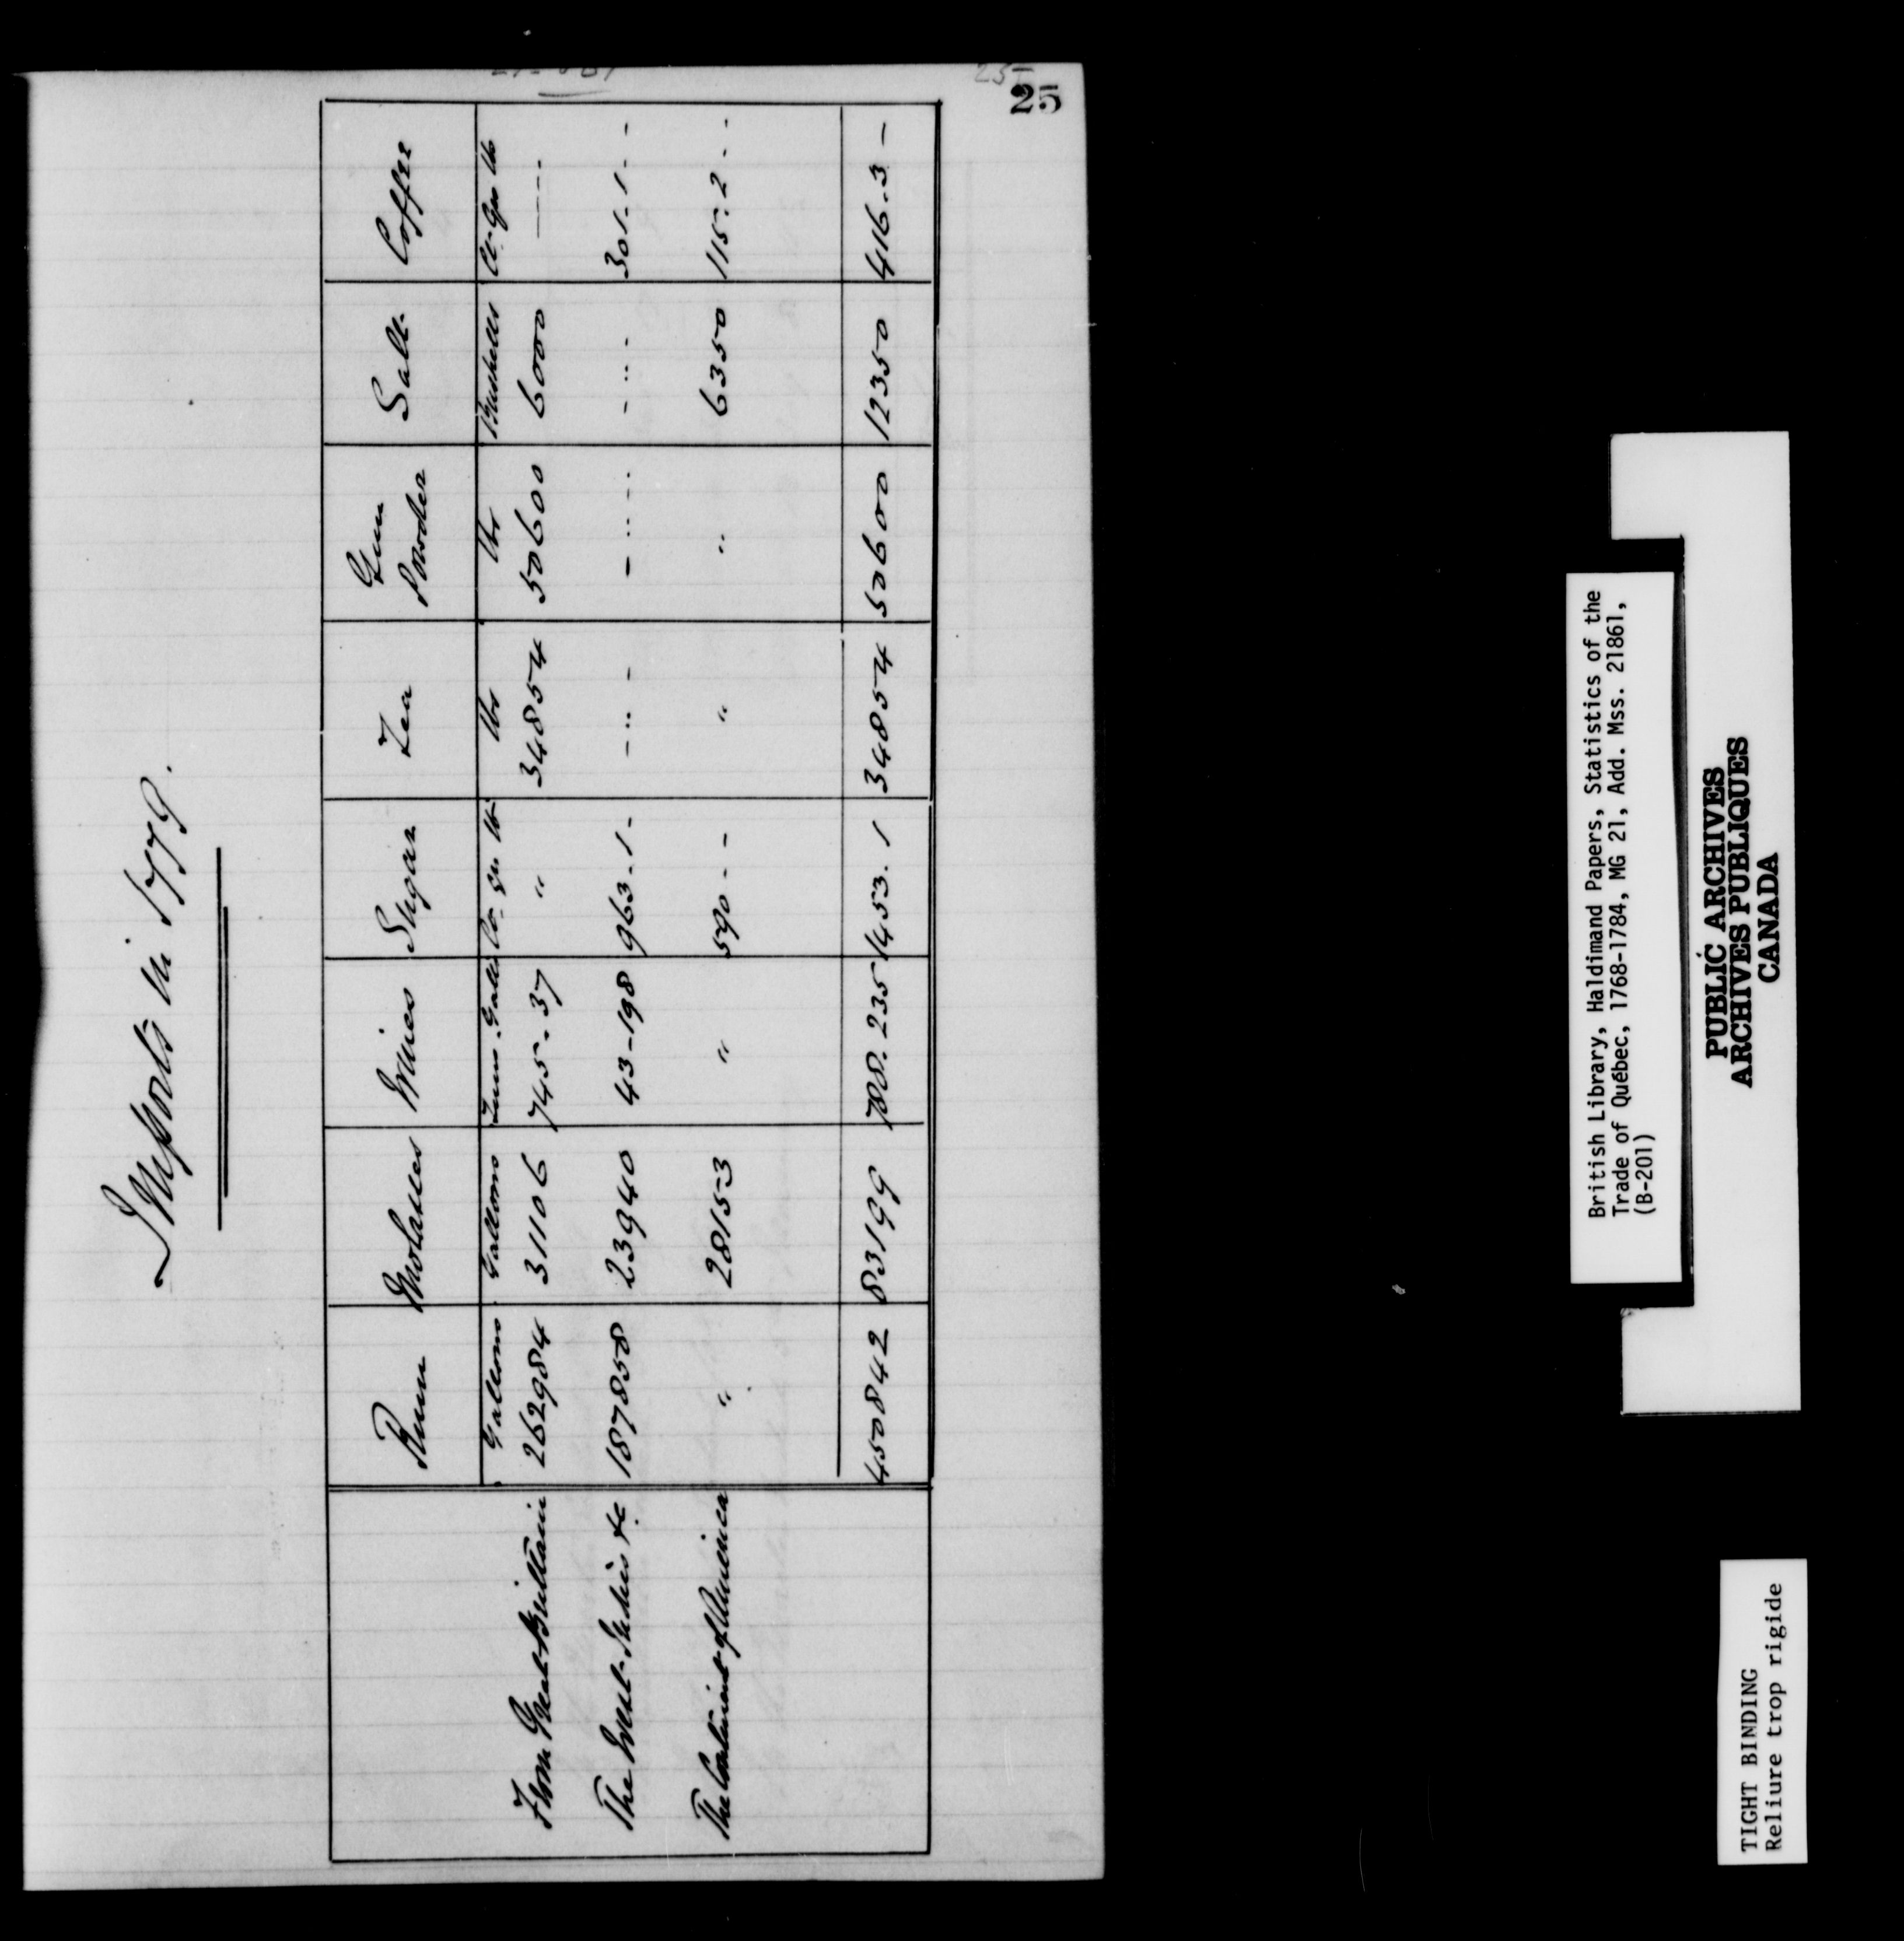 25
25
Imports in 1779.
Rum Molasses Wines Sugar Tea Gun Powder Salt Coffee
Gallons Gallons Tuns. Galls Ct. Qrs. lb lbs lbs Bushells Ct. Qrs lb
From Great Brittain 262984 31106 745-37 " 34854 50600 6000 ----
The West Indies &c 187858 23940 43-198 963-1- - " - - " - - - " - 301-1--
The Continent of America " 28153 " 590-- " " 6350 115-2--
450842 83199 788.235 1453.1 34854 50600 12350 416-3-
British Library, Haldimand Papers, Statistics of the
Trade of Québec, 1768-1784, MG 21, Add. Mss. 21861,
(B-201)
PUBLIC ARCHIVES
ARCHIVES PUBLIQUES
CANADA
TIGHT BINDING
Reliure trop rigide